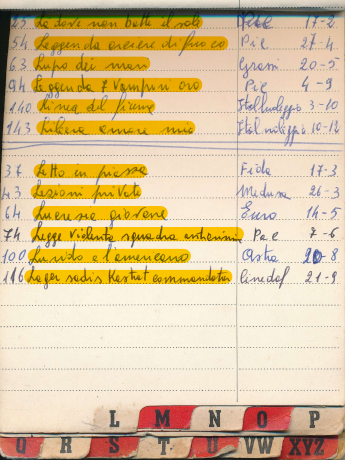 23 La dove non batte il sole 17-2
54 Leggenda arciere di fuoco Pic 27-4
63 Lupo dei mari Grassi 20-5
94 Leggenda 7 Vampiri oro Pic 4-9
140 Linea del fiume Ital noleggio 3-10
143 Libera amore mio Ital noleggio 10-12
37 Letto in piazza Fida 17-3
43 Lezioni private Medusa 26-3
64 Lucrezia giovane Euro 14-5
74 Legge Violenta squadra anticrimine Pac 7-6
100 Lunido e l'americano 20-8
116 Lager sadis Kastrat commandatur Cinedaf 21-9
L M N O P
Q R S T U VW XYZ